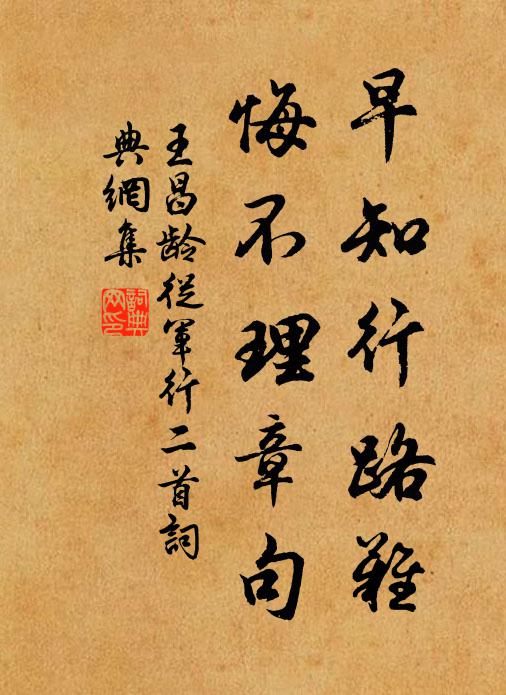 早知行路難
悔不理章句
王昌龄從軍行二首詞
典網集
詞典网印